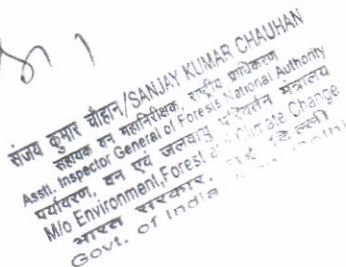 संजय कुमार चौहान/SANJAY KUMAR CHAUHAN
सहायक वन महानिरीक्षक, राष्ट्रीय प्राधिकरण
Asstt. Inspector General of Forests, National Authority
पर्यावरण, वन एवं जलवायु परिवर्तन मंत्रालय
M/o Environment, Forest & Climate Change
भारत सरकार, नई दिल्ली
Govt. of India Delhi